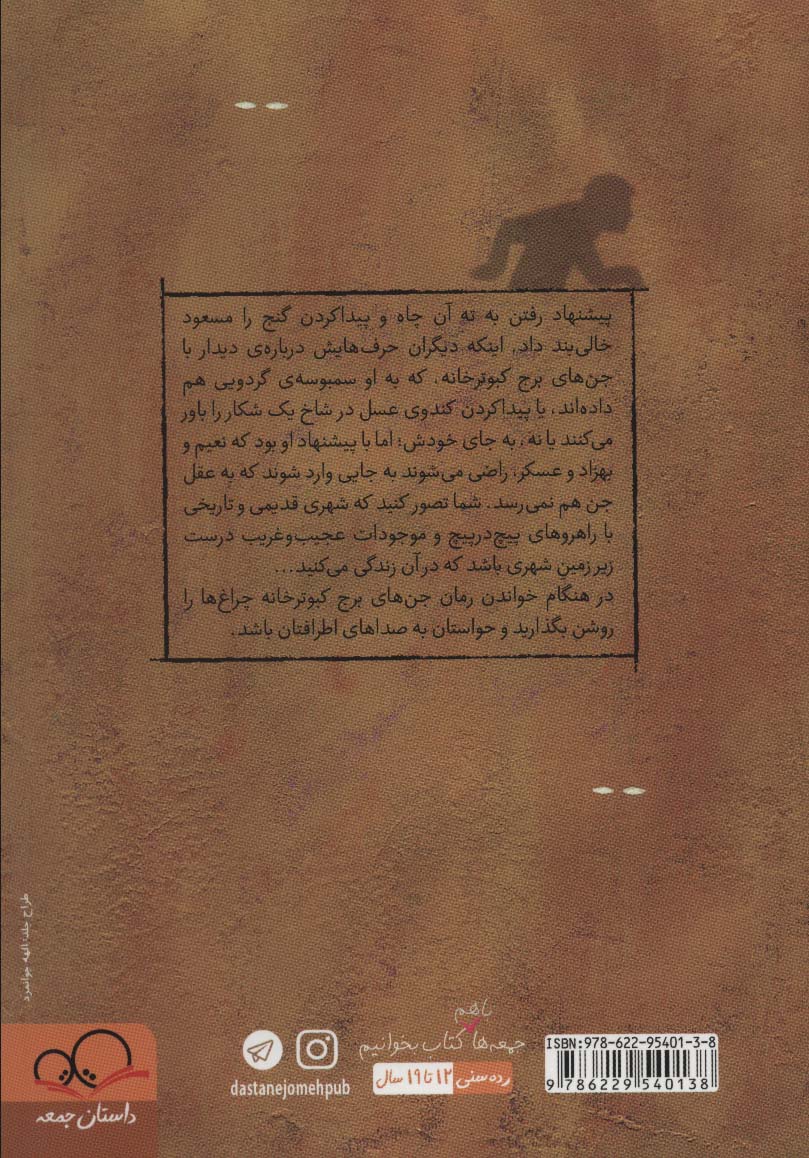 پیشنهاد رفتن به ته آن چاه و پیداکردن گنج را مسعود
خالی‌بند داد. اینکه دیگران حرف‌هایش درباره‌ی دیدار با
جن‌های برج کبوترخانه، که به او سمبوسه‌ی گردویی هم
داده‌اند، یا پیداکردن کندوی عسل در شاخ یک شکار را باور
می‌کنند یا نه، به جای خودش؛ اما با پیشنهاد او بود که نعیم و
بهزاد و عسکر، راضی می‌شوند به جایی وارد شوند که به عقل
جن هم نمی‌رسد. شما تصور کنید که شهری قدیمی و تاریخی
با راهروهای پیچ‌درپیچ و موجودات عجیب‌وغریب درست
زیر زمین شهری باشد که در آن زندگی می‌کنید...
در هنگام خواندن رمان جن‌های برج کبوترخانه چراغ‌ها را
روشن بگذارید و حواستان به صداهای اطرافتان باشد.
طراح جلد: الهه جوانمرد
باهم
جمعه‌ها کتاب بخوانیم
رده سنی ۱۲ تا ۱۹ سال
dastanejomehpub
داستان جمعه
ISBN: 978-622-95401-3-8
9 786229 540138